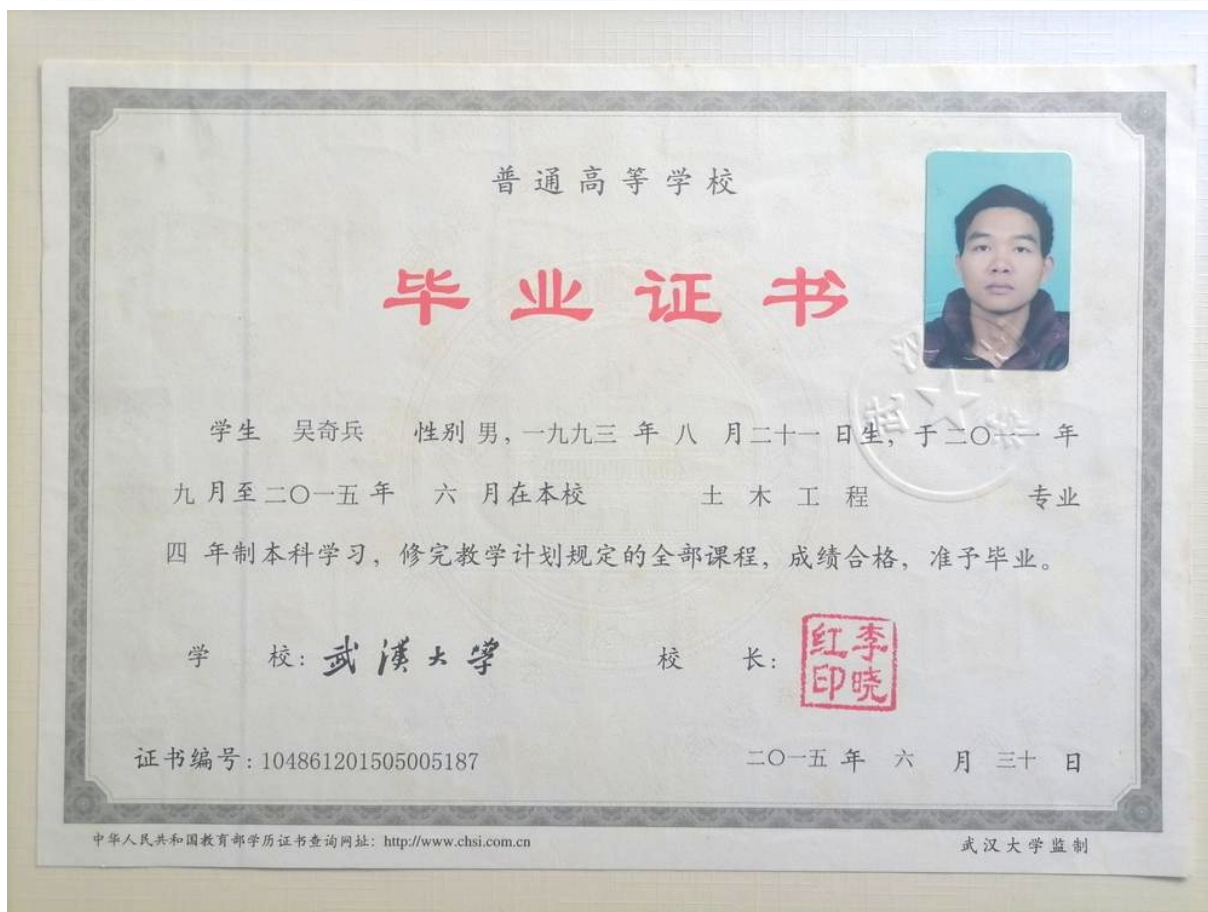 普通高等学校
毕业证书
学生 吴奇兵 性别 男，一九九三 年 八 月二十一 日生，于二〇一一 年
九 月至二〇一五年 六 月在本校 土木工程 专业
四 年制本科学习，修完教学计划规定的全部课程，成绩合格，准予毕业。
学 校：武漢大学 校 长：李晓红印
证书编号：104861201505005187 二〇一五 年 六 月 三十 日
中华人民共和国教育部学历证书查询网址：http://www.chsi.com.cn 武汉大学监制